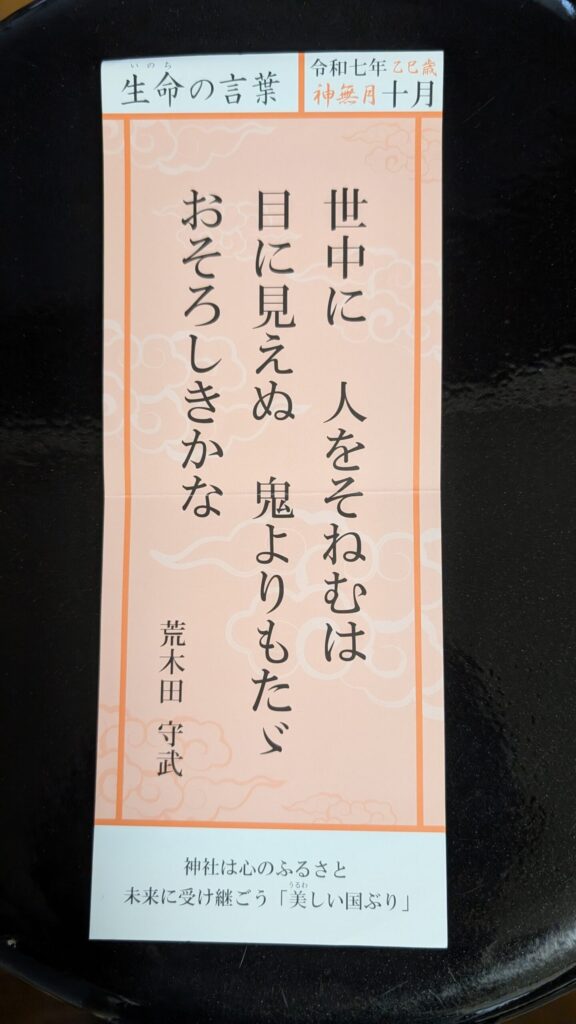 生命の言葉
いのち
令和七年 乙巳歳
神無月 十月
世中に 人をそねむは
目に見えぬ 鬼よりもたゞ
おそろしきかな
荒木田 守武
神社は心のふるさと
未来に受け継ごう「美しい国ぶり」
うるわ